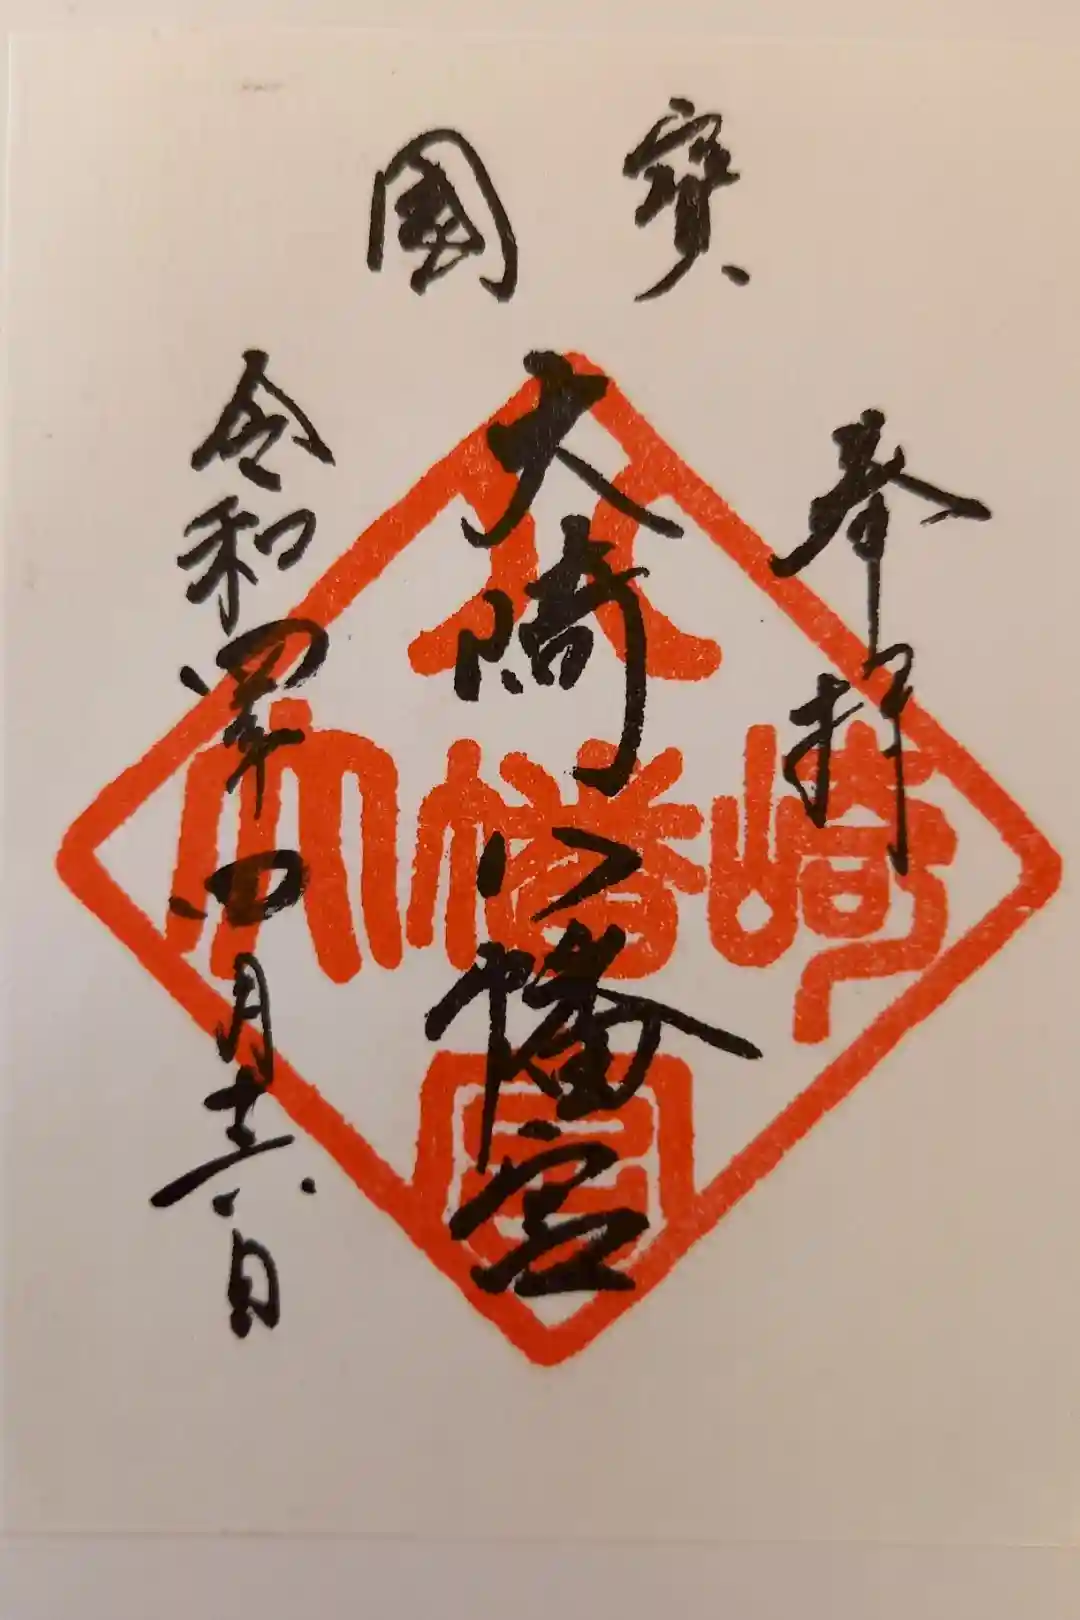 國寶
奉拝
大崎八幡宮
令和四年四月十六日
大崎八幡宮